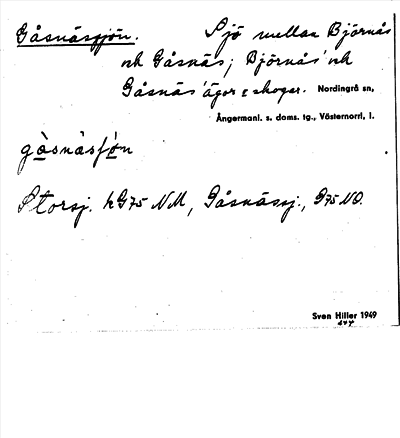 Gåsnäsfjön. Sjö mellan Björnås
och Gåsnäs; Björnås' och
Gåsnäs' ägor & skogar. Nordingrå sn,
Ångermanl. s. doms. tg., Västernorrl. l.
gåsnäsfʃön
Storsj. hG75 NM, Gåsnässj., G75 NO.
Sven Hiller 1949